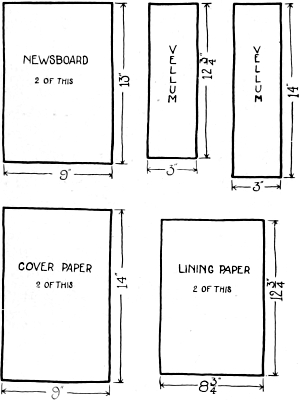 NEWSBOARD
2 OF THIS
13"
9"
VELLUM
12 3/4"
3"
VELLUM
14"
3"
COVER PAPER
2 OF THIS
14"
9"
LINING PAPER
2 OF THIS
12 3/4"
8 3/4"